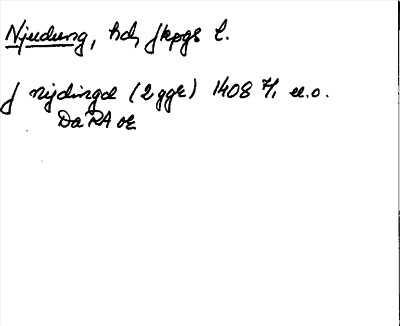 Njudung, hd, Jkpgs l.
J nijdingd (2 ggr) 1408 7/1 u.o.
DaRA or